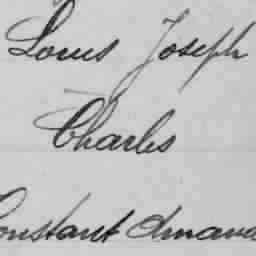 Louis Joseph
Charles
Constant Amand